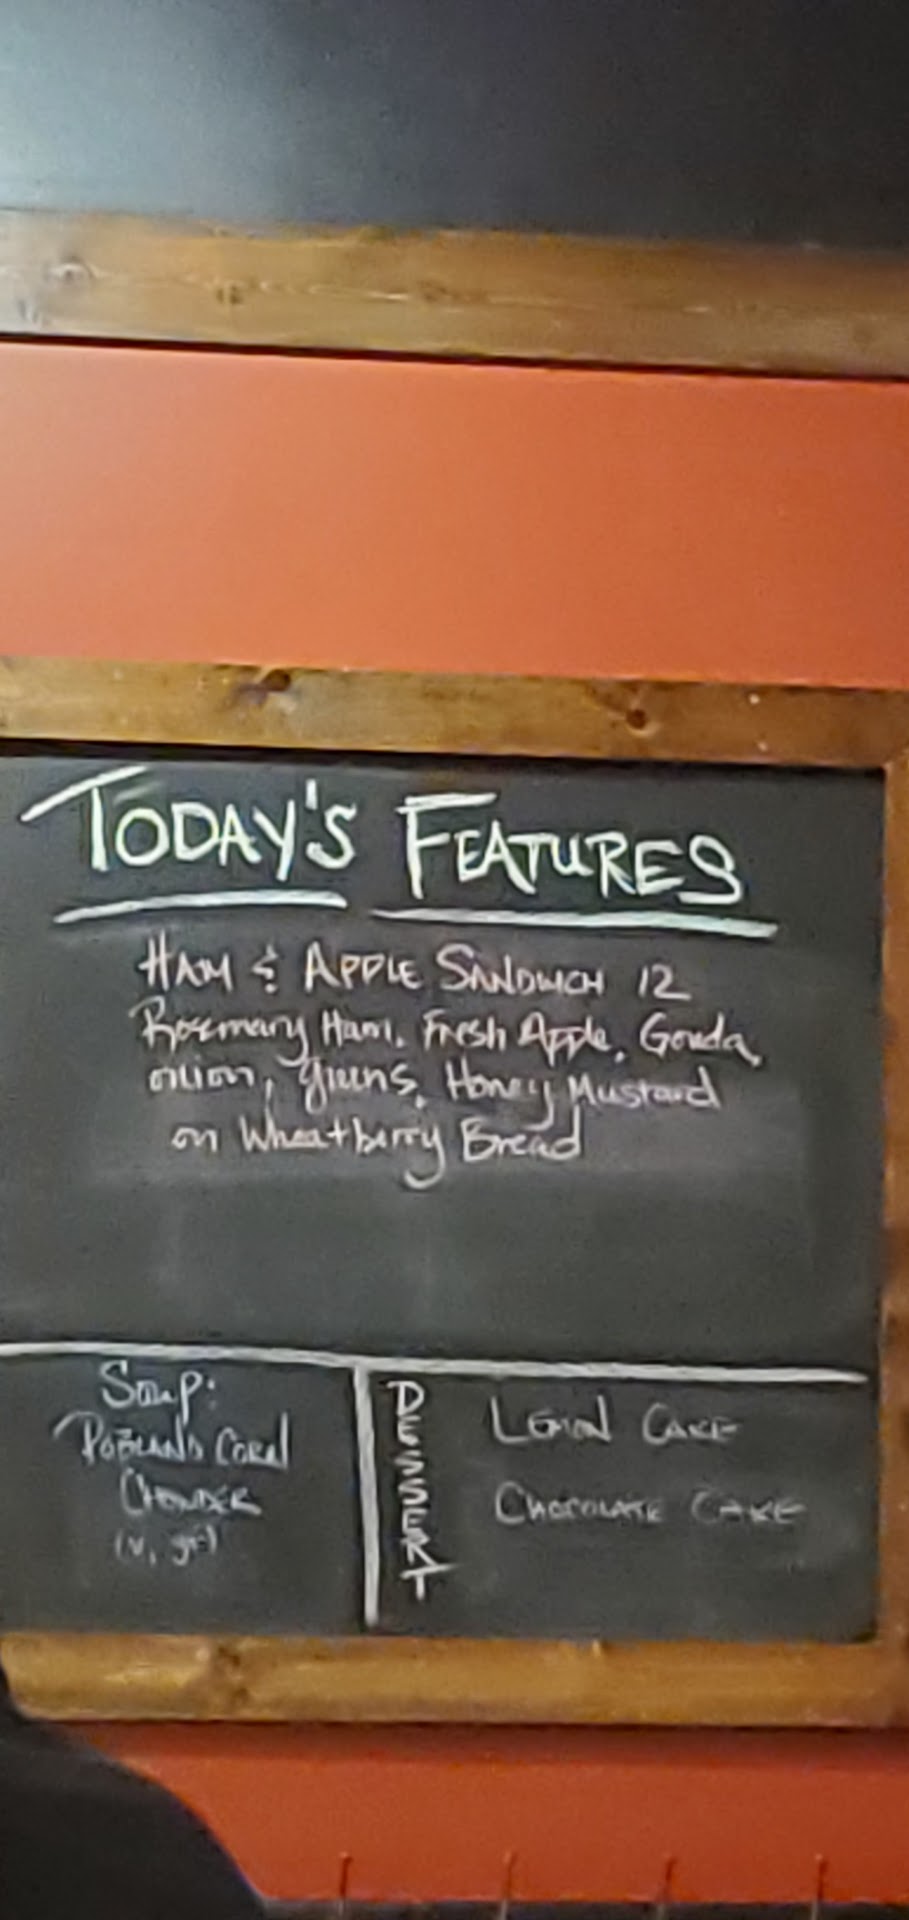 TODAY'S FEATURES
HAM & APPLE SANDWICH 12
Rosemary Ham, Fresh Apple, Gouda,
onion, greens, Honey Mustard
on Wheatberry Bread
Soup:
POBLANO CORN
CHOWDER
(v, gf)
DESSERT
LEMON CAKE
CHOCOLATE CAKE